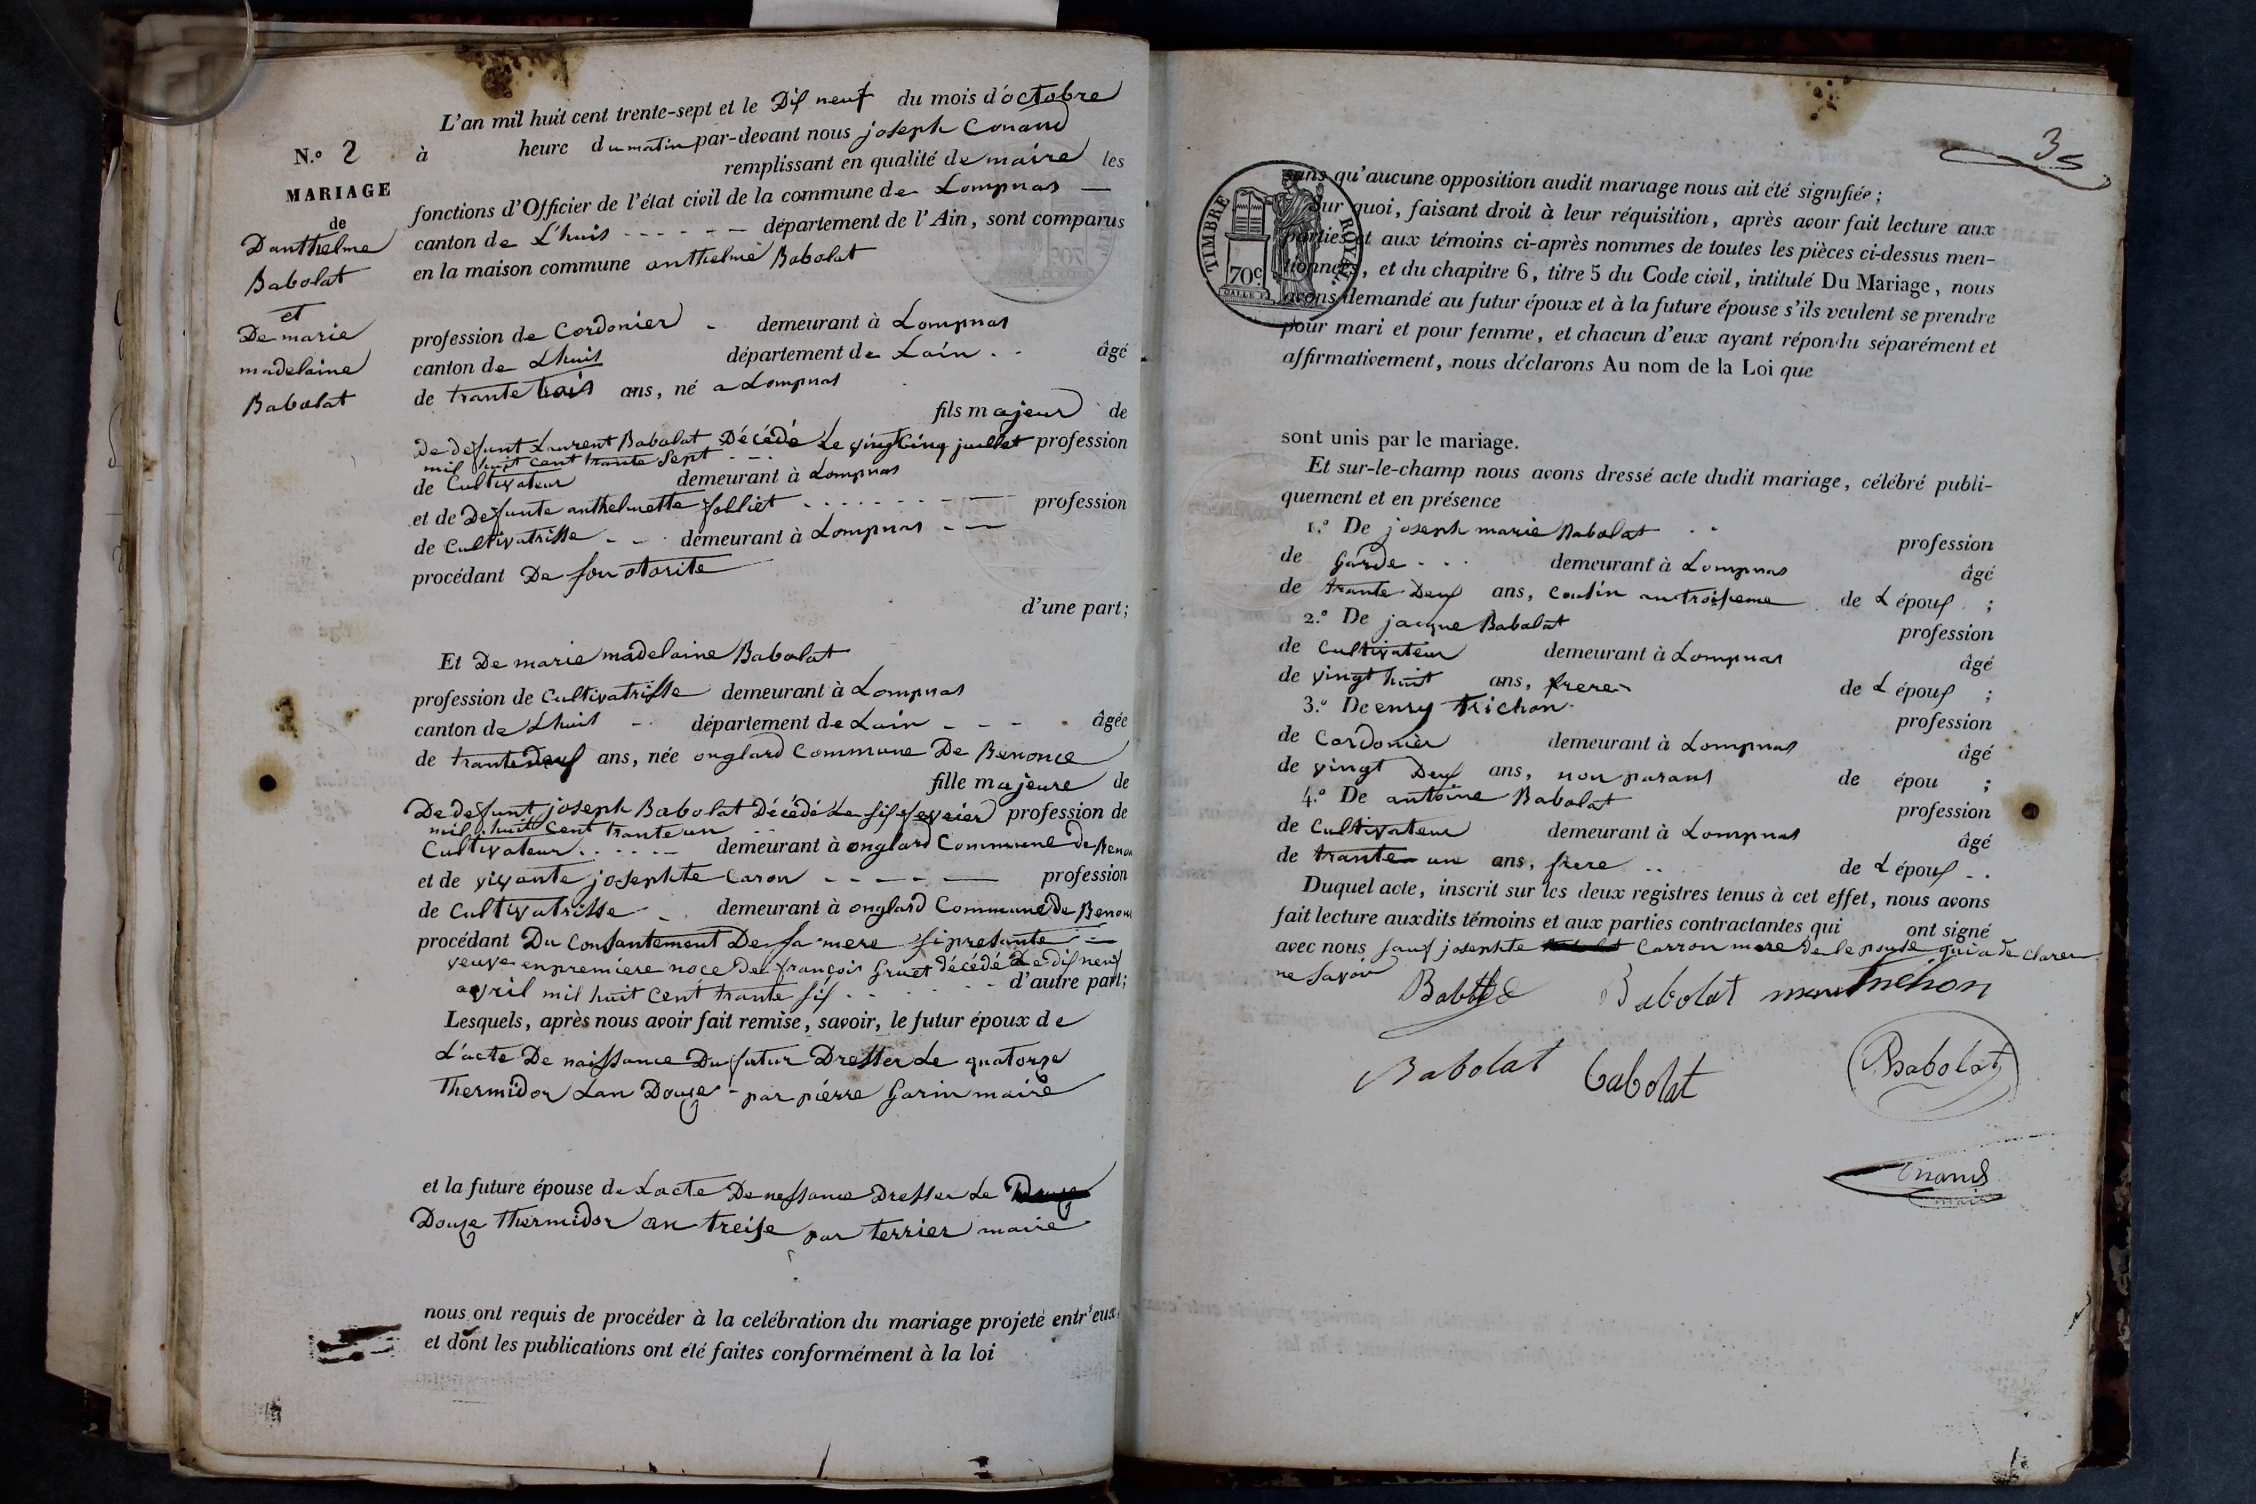 N.º 2
MARIAGE
de
Danthelme
Babolat
et
De marie
madelaine
Babolat
L'an mil huit cent trente-sept et le Dix neuf du mois d'octobre
à heure du matin par-devant nous joseph Conand
remplissant en qualité de maire les
fonctions d'Officier de l'état civil de la commune de Lompnas
canton de L'huis département de l'Ain, sont comparus
en la maison commune anthelme Babolat
profession de Cordonier demeurant à Lompnas
canton de Lhuis département de Lain âgé
de trante trois ans, né a Lompnas
fils majeur de
De defunt Laurent Babolat Décédé Le vingt cinq juillet profession
mil huit cent trante sept
de Cultivateur demeurant à Lompnas
et de Defunte anthelmette folliet profession
de Cultivatrisse demeurant à Lompnas
procédant De son otorite
d'une part;
Et De marie madelaine Babolat
profession de Cultivatrisse demeurant à Lompnas
canton de Lhuis département de Lain âgée
de trante deux ans, née onglard Commune De Benonce
fille majeure de
De defunt joseph Babolat Décédé Le six fevrier profession de
mil huit cent trante un
Cultivateur demeurant à onglard Commune de Benon
et de vivante josephte Caron profession
de Cultivatrisse demeurant à onglard Commune de Benon
procédant Du Consantement De sa mere si presante
veuve en premiere noce De françois Gruet décédé Le dix neuf
avril mil huit cent trante six d'autre part;
Lesquels, après nous avoir fait remise, savoir, le futur époux de
L'acte De naissance Du futur Dresser Le quatorze
Thermidor Lan Douze par pierre Garin maire
et la future épouse de Lacte De nessance Dresser Le
Douze Thermidor an treise par terrier maire
nous ont requis de procéder à la célébration du mariage projeté entr'eux
et dont les publications ont été faites conformément à la loi
3
TIMBRE ROYAL
70c
sans qu'aucune opposition audit mariage nous ait été signifiée;
Sur quoi, faisant droit à leur réquisition, après avoir fait lecture aux
parties et aux témoins ci-après nommes de toutes les pièces ci-dessus men-
tionnées, et du chapitre 6, titre 5 du Code civil, intitulé Du Mariage, nous
avons demandé au futur époux et à la future épouse s'ils veulent se prendre
pour mari et pour femme, et chacun d'eux ayant répondu séparément et
affirmativement, nous déclarons Au nom de la Loi que
sont unis par le mariage.
Et sur-le-champ nous avons dressé acte dudit mariage, célébré publi-
quement et en présence
1.º De joseph marie Babolat profession
de Garde demeurant à Lompnas âgé
de trante Deux ans, Cousin au troisieme de L époux ;
2.º De jacque Babolat profession
de Cultivateur demeurant à Lompnas âgé
de vingt huit ans, frere de L époux ;
3.º De enry trichon profession
de Cordonier demeurant à Lompnas âgé
de vingt Deux ans, non parans de épou ;
4.º De antoine Babolat profession
de Cultivateur demeurant à Lompnas âgé
de trante un ans, frere de L époux
Duquel acte, inscrit sur les deux registres tenus à cet effet, nous avons
fait lecture auxdits témoins et aux parties contractantes qui ont signé
avec nous sauf josephte Carron mere de le pouse qui a de clarer
ne savoir
Babolat trichon
Babolat babolat Babolat
Conand
maire